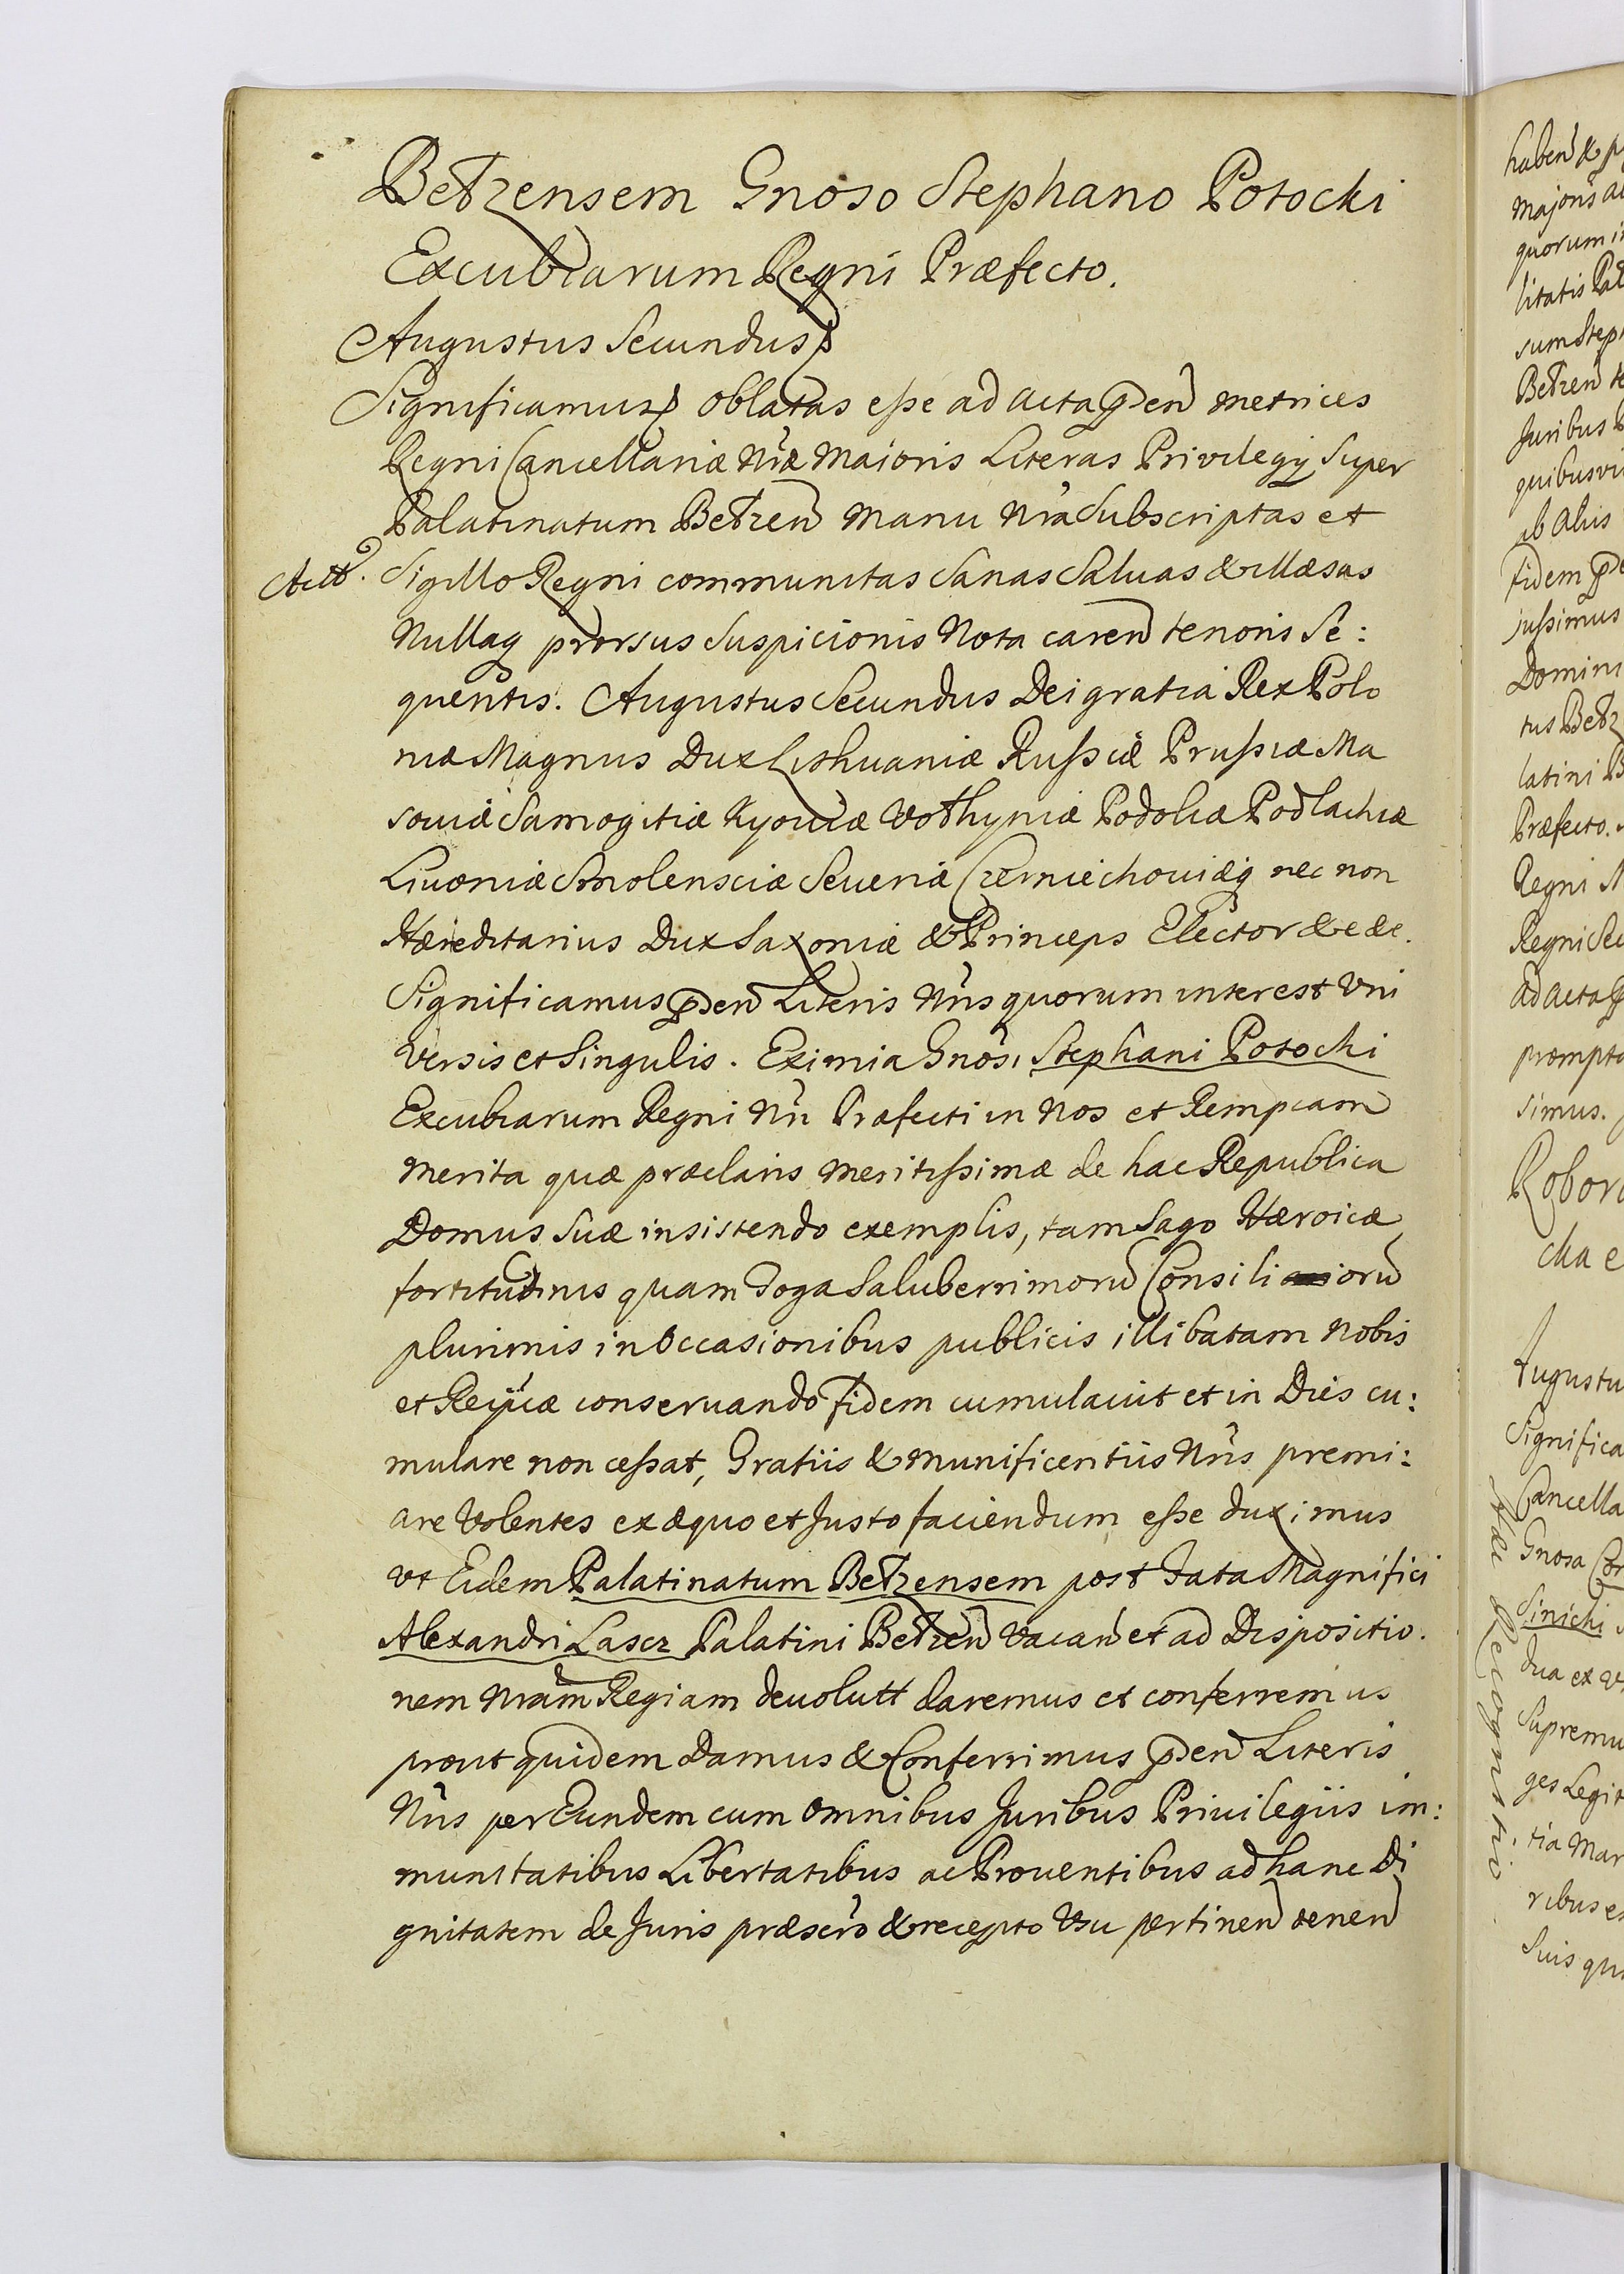 Bełzensem Gnoso Stephano Potocki
Excubiarum Regni Præfecto.
Augustus Secundus
Significamus oblatas eſse ad acta pden metrices
Regni Cancellariæ Nræ Maioris Literas Privilegÿ Super
Palatinatum Bełzen Manu Nra Subscriptas et
Sigillo Regni communitas Sanas Saluas & illæsas
Nullaq prorsus Suspicionis Nota caren tenoris Se:
quentis. Augustus Secundus Dei gratia Rex Polo
niæ Magnus Dux Lithuaniæ Ruſsiæ Pruſsiæ Ma
souiæ Samogitiæ Kyouiæ Vołhyniæ Podoliæ Podlachiæ
Liuoniæ Smolensciæ Seueriæ Czerniechouiæq nec non
Hæreditarius Dux Saxoniæ & Princeps Elector &c &c.
Significamus pden Literis Nris quorum interest Vni
versis et Singulis. Eximia Gnosi Stephani Potocki
Excubiarum Regni Nri Præfecti in Nos et Rempcam
Merita quæ præclaris meritiſsimæ de hac Republica
Domus Suæ insistendo exemplis, tam Sago Hæroicæ
fortitudinis quam Toga Saluberrimoru Consiliioru
plurimis in Occasionibus publicis illibatam Nobis
et Reipcæ conseruando fidem cumulauit et in Dies cu:
mulare non ceſsat, Gratiis & Munificentiis Nris premi:
are Volentes ex æquo et Justo faciendum eſse duximus
vt Eidem Palatinatum Bełzensem post Fata Magnifici
Alexandri Lascz Palatini Bełzen Vacan et ad Dispositio.
nem Nram Regiam deuolutt daremus et conferremus
prout quidem Damus & Conferrimus pden Literis
Nris per Eundem cum Omnibus Juribus Priuilegiis im:
munitatibus Libertatibus ac Prouentibus ad hanc Di
gnitatem de Juris præscro & recepto Vsu pertinen tenen
haben &
Majoris
quorum
litatis
sum
Bełzen
Juribus
quibusvis
ab Aliis
fidem
juſsimus
Domini
tus Bełz
latini
Præfecto.
Regni
Regni
ad acta
præmpto
simus.
Augustu
Significa
Cancella
Gnosa
dua ex
Supremu
ges Legit
tia Mar
ribus
Suis